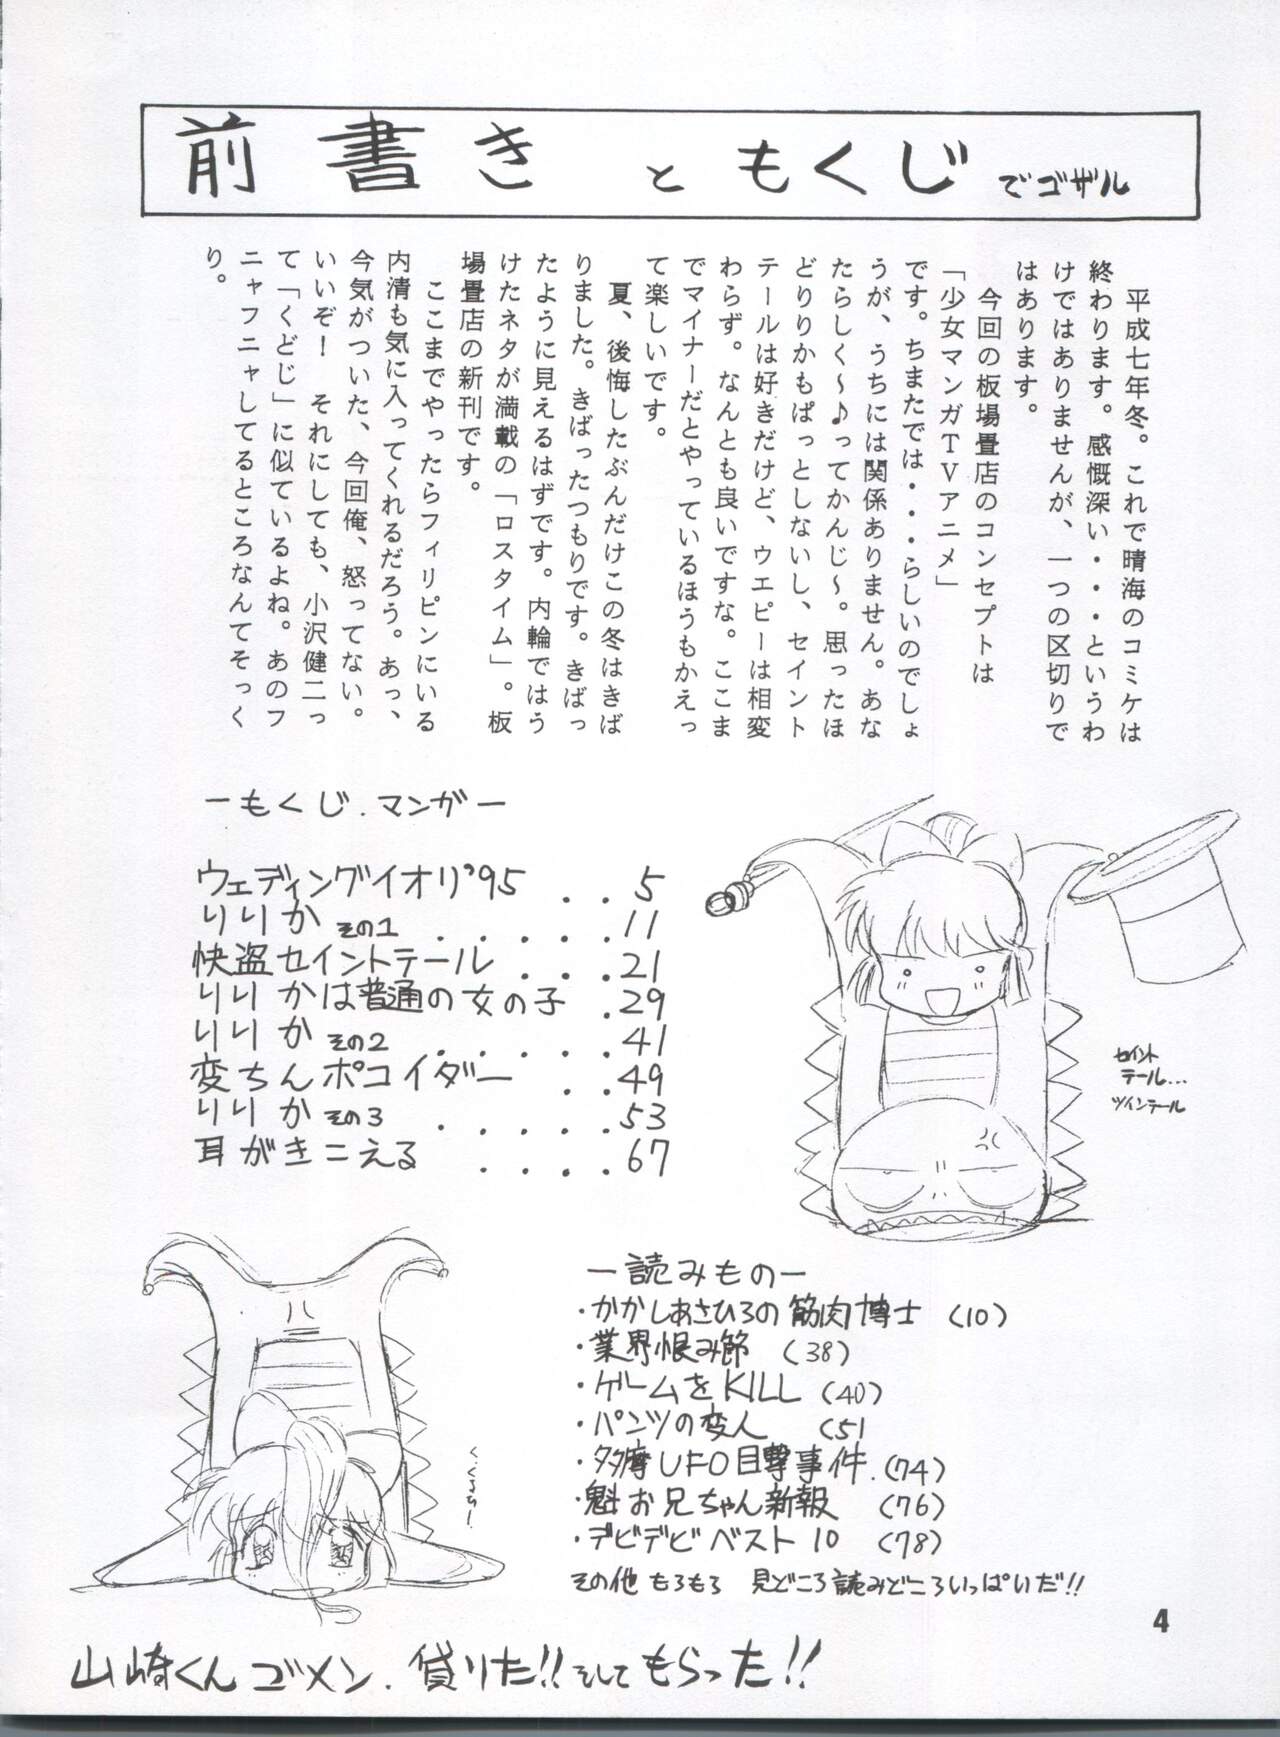 前書きともくじでゴザル
　平成七年冬。これで晴海のコミケは
終わります。感慨深い・・・というわ
けではありませんが、一つの区切りで
はあります。
　今回の板場畳店のコンセプトは
「少女マンガTVアニメ」
です。ちまたでは・・・らしいのでしょ
うが、うちには関係ありません。あな
たらしく～♪ってかんじ～。思ったほ
どりりかもぱっとしないし、セイント
テールは好きだけど、ウエピーは相変
わらず。なんとも良いですな。ここま
でマイナーだとやっているほうもかえっ
て楽しいです。
　夏、後悔したぶんだけこの冬はきば
りました。きばったつもりです。きばっ
たように見えるはずです。内輪ではう
けたネタが満載の「ロスタイム」。板
場畳店の新刊です。
　ここまでやったらフィリピンにいる
内清も気に入ってくれるだろう。あっ、
今気がついた、今回俺、怒ってない。
いいぞ！　それにしても、小沢健二っ
て「くどじ」に似ているよね。あのフ
ニャフニャしてるところなんてそっく
り。
ーもくじ.マンガー
ウェディングイオリ'95 . . 5
りりか その1 . . . . . 11
快盗セイントテール . . . 21
りりかは普通の女の子 . 29
りりか その2 . . . . . 41
変ちんポコイダー . . 49
りりか その3 . . . . . 53
耳がきこえる . . . . 67
セイント
テール...
ツインテール
ー読みものー
・かかしあさひろの筋肉博士 (10)
・業界恨み節 (38)
・ゲームをKILL (40)
・パンツの変人 (51
・多摩UFO目撃事件. (74)
・魁お兄ちゃん新報 (76)
・デビデビベスト10 (78)
その他もろもろ 見どころ読みどころいっぱいだ!!
く、くるひー
4
山崎くんゴメン.借りた!!そしてもらった!!